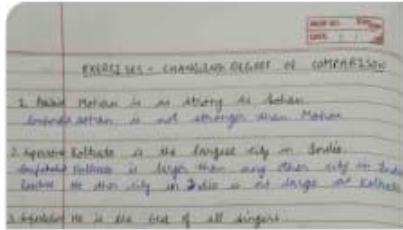 PAGE NO.
DATE
EXERCISES - CHANGING DEGREE OF COMPARISON
1. Positive Mohan is as strong as Sohan
Comparative Sohan is not stronger than Mohan
2. Superlative Kolkata is the largest city in India
Comparative Kolkata is larger than any other city in India
Positive No other city in India is as large as Kolkata
3. Superlative He is the best of all singers.